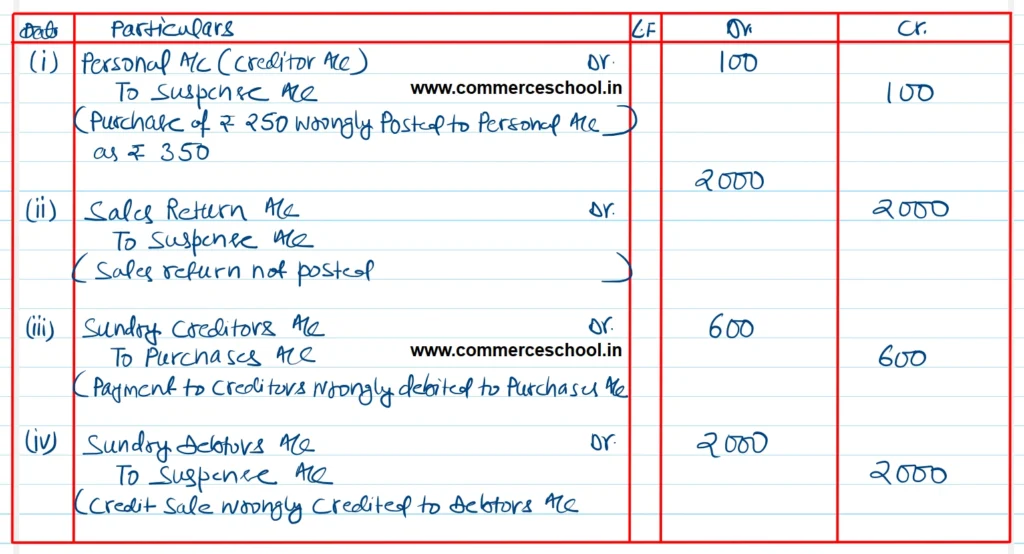 Date Particulars L.F Dr. Cr.
(i) Personal A/c (Creditor A/c) Dr. 100
To Suspense A/c www.commerceschool.in 100
(Purchase of ₹ 250 wrongly Posted to Personal A/c)
as ₹ 350
2000
(ii) Sales Return A/c Dr. 2000
To Suspense A/c
(Sales return not posted)
(iii) Sundry Creditors A/c Dr. 600
To Purchases A/c www.commerceschool.in 600
(Payment to Creditors wrongly debited to Purchases A/c
(iv) Sundry Debtors A/c Dr. 2000
To Suspense A/c 2000
(Credit Sale wrongly Credited to Debtors A/c